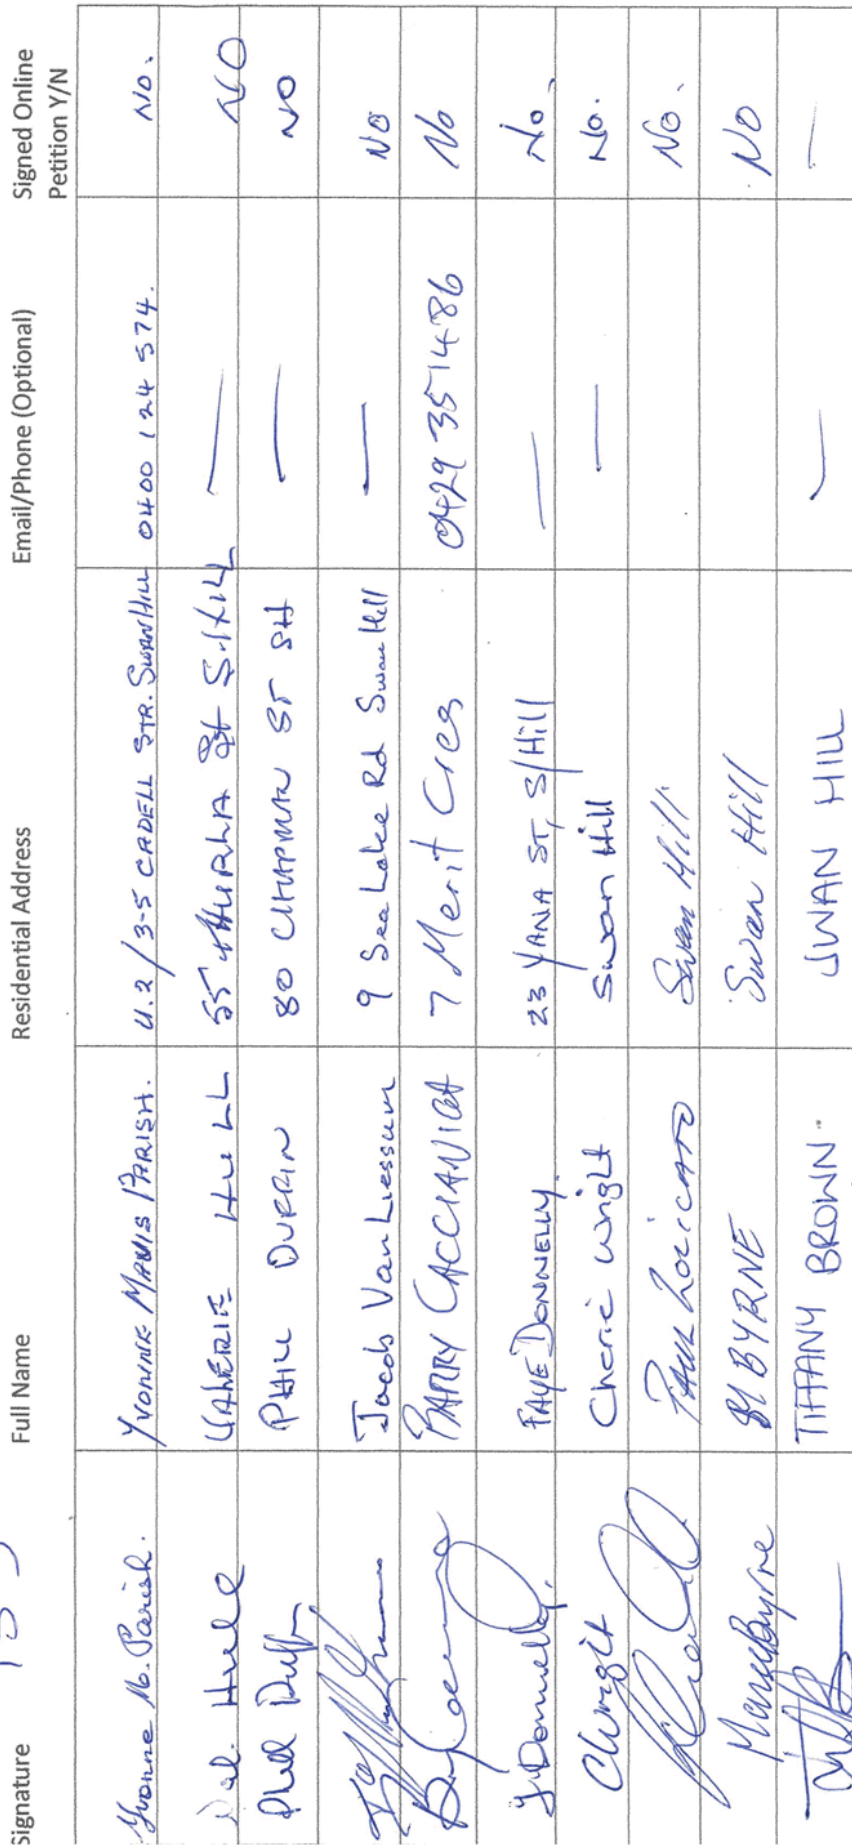 Signature Full Name Residential Address Email/Phone (Optional) Signed Online Petition Y/N
Yvonne M. Parish. YVONNE MAVIS PARISH. U.2/3-5 CADELL STR. SWAN HILL 0400 124 574. NO.
Val. Hull VALERIE HULL 55 THURLA St S.HILL — NO
Phil PHIL 80 CHAPMAN ST SH — NO
Jacob Van Liessum 9 Sea Lake Rd Swan Hill — NO
BARRY CACCIANIGA 7 Merit Cres 0429 351486 No
F Donnelly. FAYE DONNELLY. 23 YANA ST, S/Hill — No.
CWright Cherie Wright Swan Hill — No.
PAUL LOCICATO Swan Hill. No.
Mary Byrne M BYRNE Swan Hill NO
TIFFANY BROWN. SWAN HILL — —